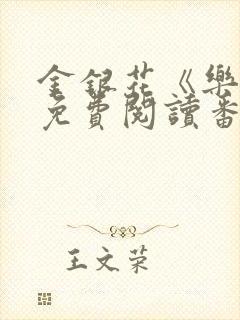 金銀花《樂
免費閱讀番
王文荣